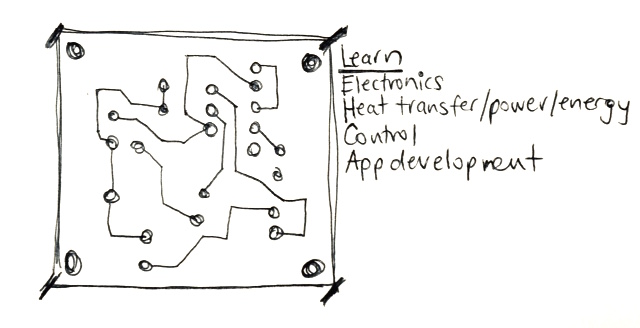 Learn
Electronics
Heat transfer/power/energy
Control
App development